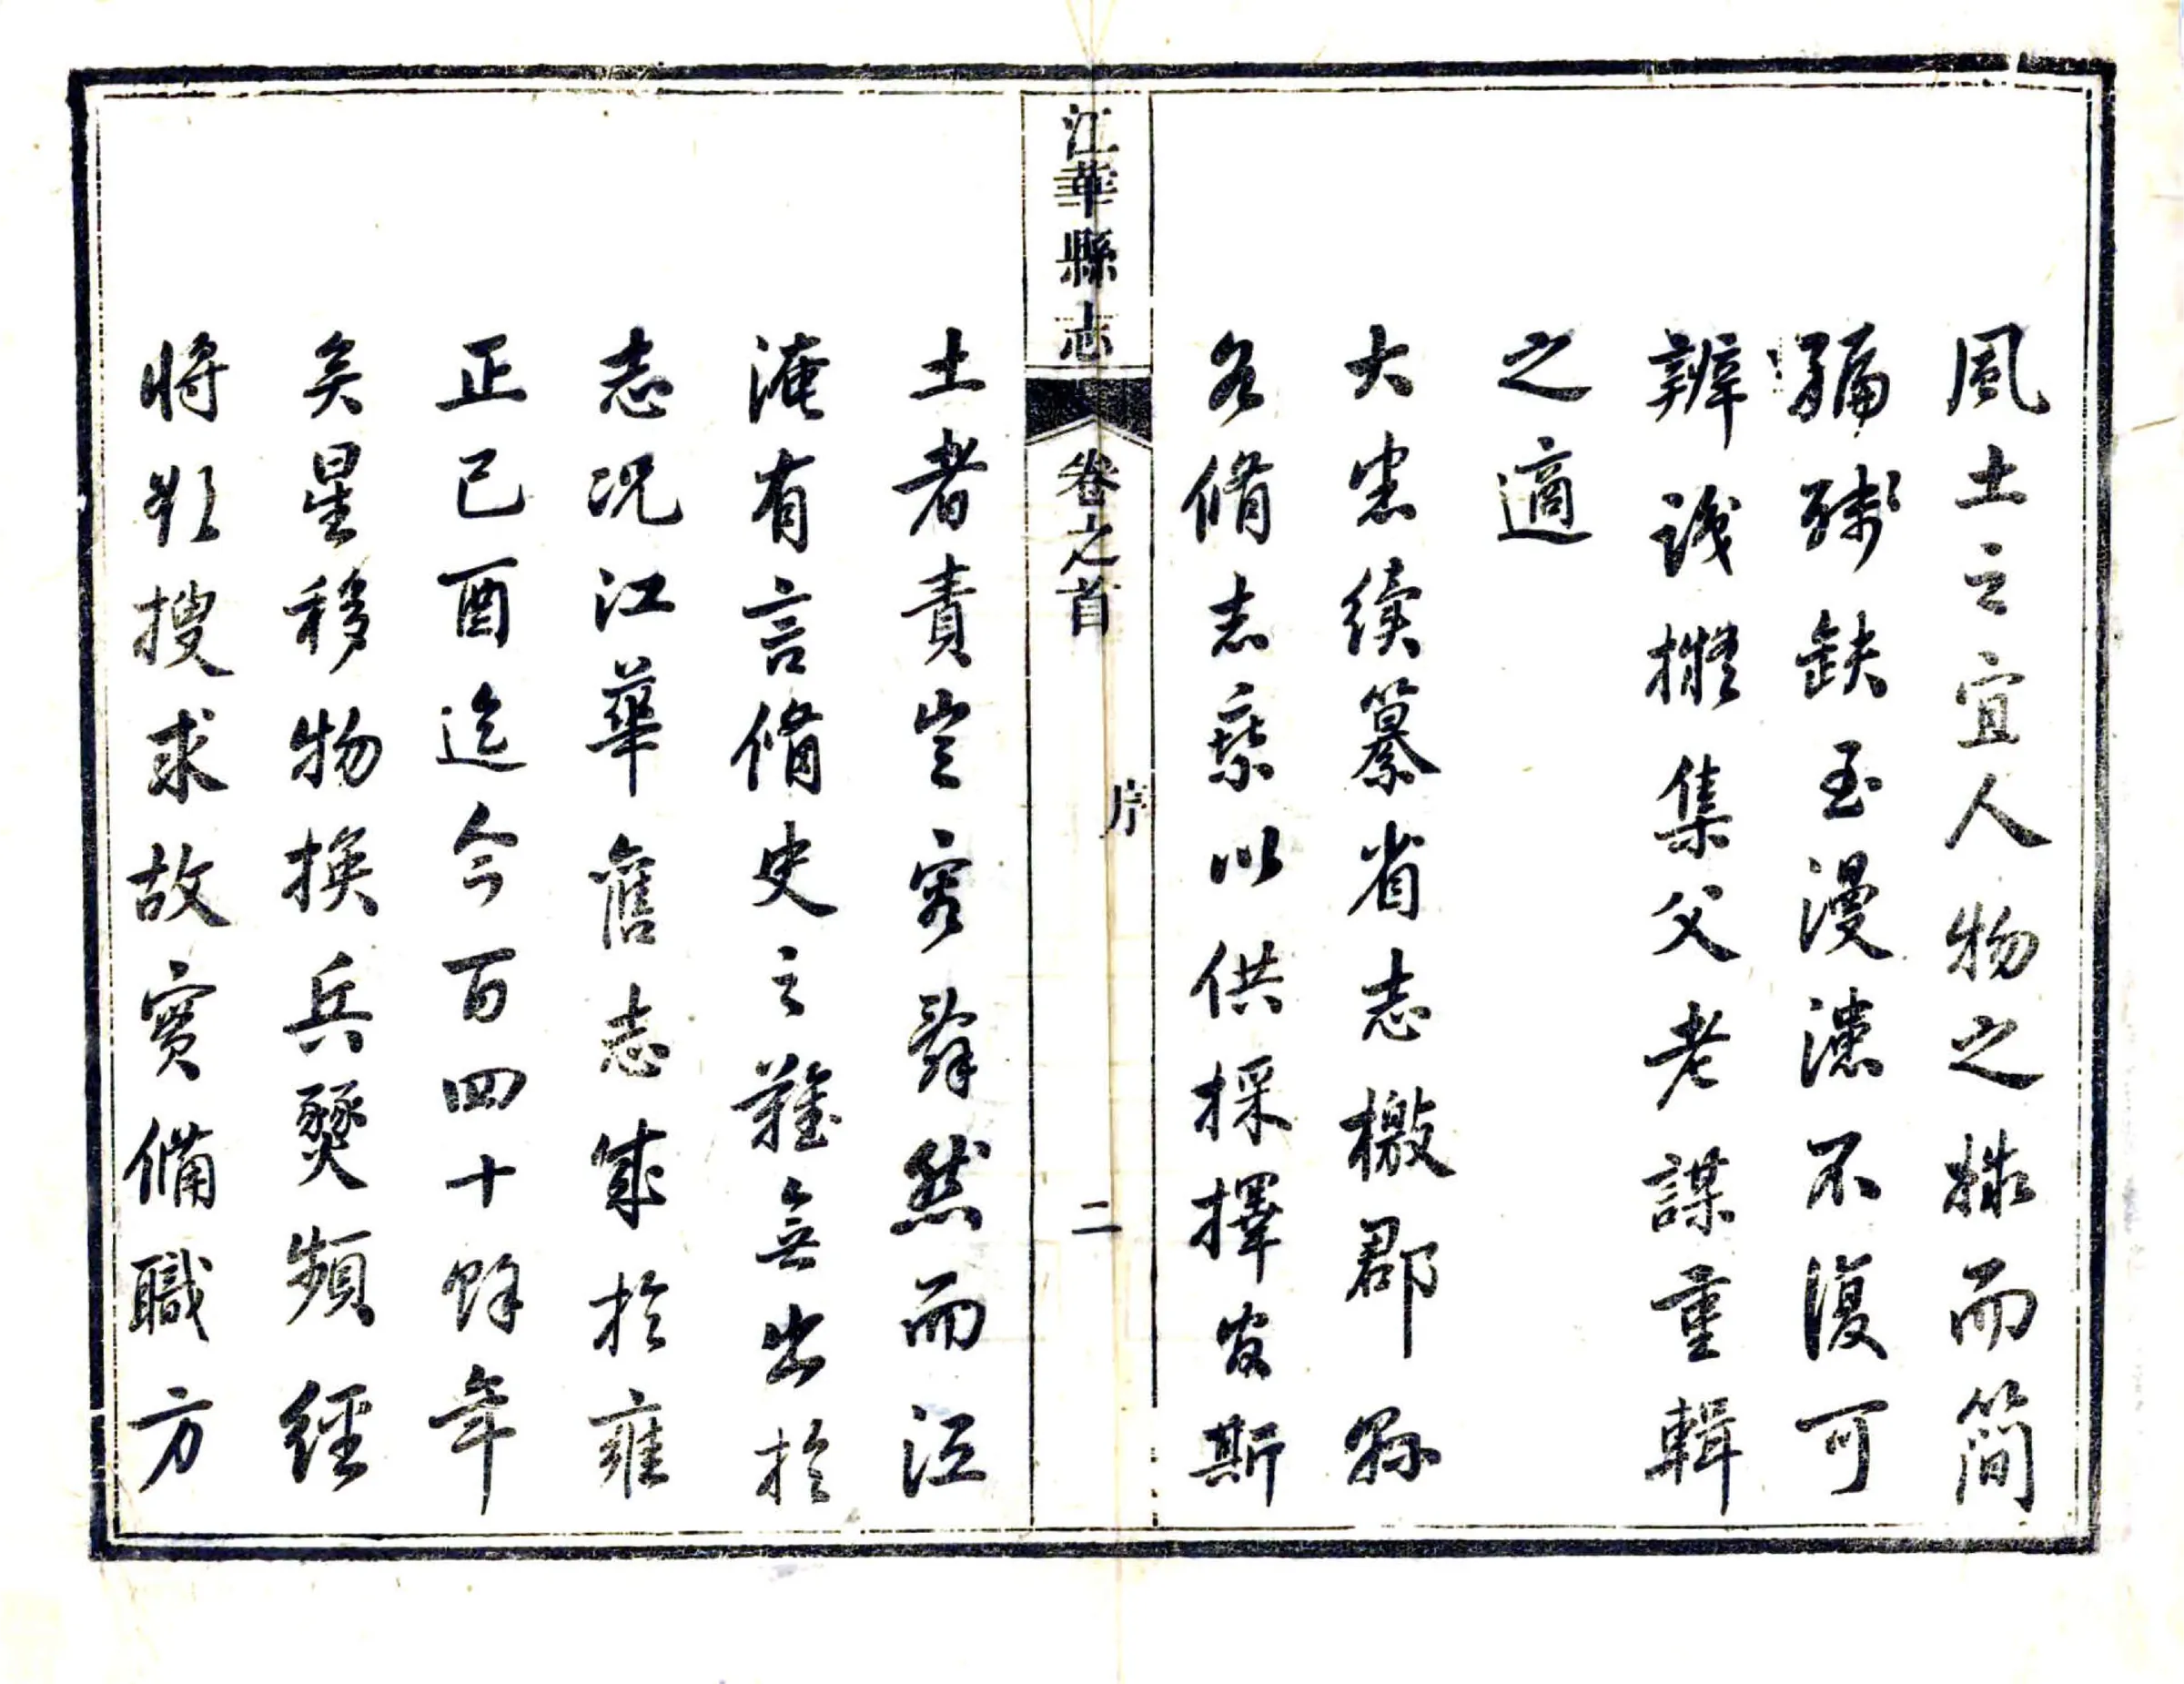 風土之宜人物之而簡
編殘缺至漫漶不復可
辨議擬集父老謀重輯
之適
大憲續纂省志檄郡縣
各脩志乘以供採擇官斯
江華縣志
卷之首
序
二
土者責豈容辭然而江
淹有言脩史之難無出於
志况江華舊志成於雍
正己酉迄今百四十餘年
矣星移物換兵燹頻經
將欲搜求故實備職方